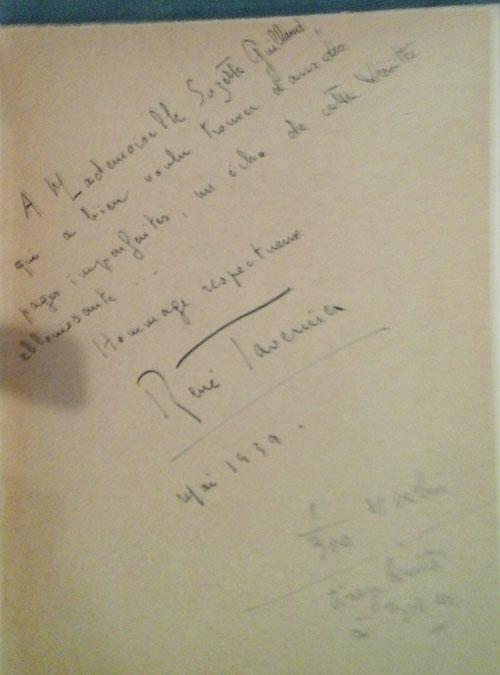 A Mademoiselle Suzette Guillaud,
qui a bien voulu trouver dans des
pages imparfaites, un écho de cette Vérité
éblouissante...
Hommage respectueux
René Tavernier
Mai 1939.
1
300